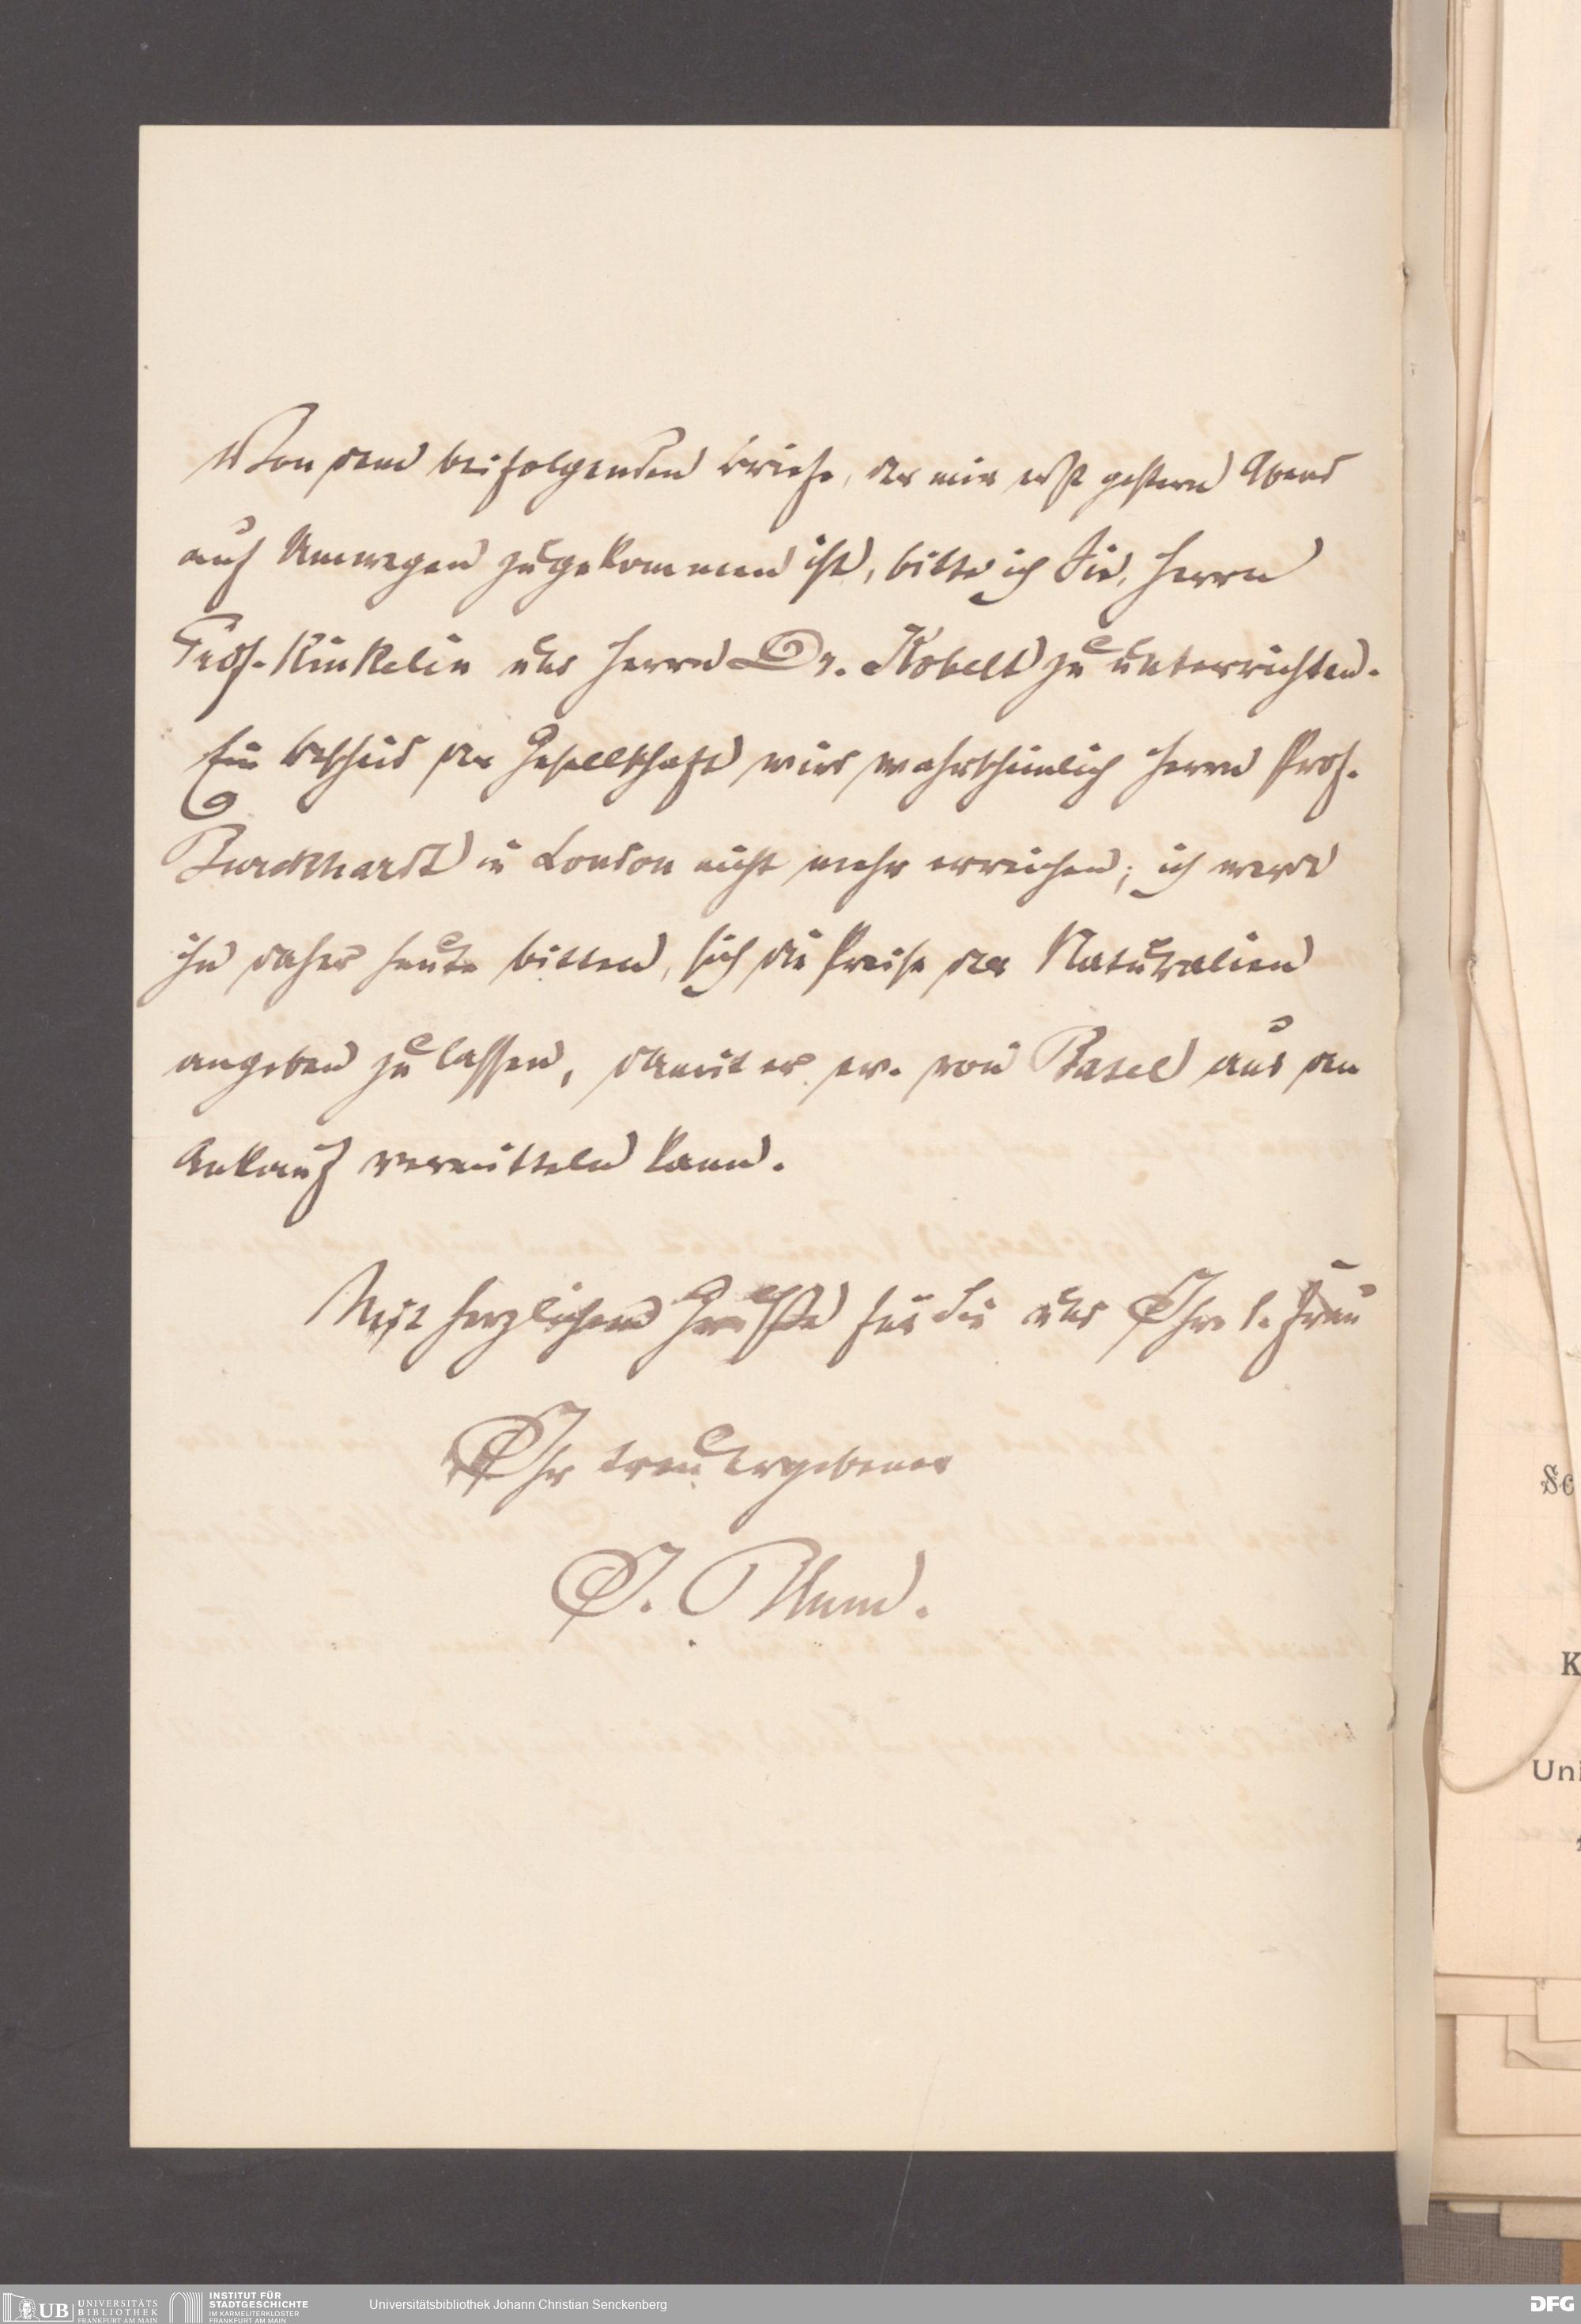 Von dem beifolgenden Briefe, der mir erst gestern Abend
auf Umwegen zugekommen ist, bitte ich Sie, Herrn
Prof. Kinkelin und Herrn Dr. Kobelt zu unterrichten.
Ein Bescheid der Gesellschaft wird wahrscheinlich Herrn Prof.
Burckhardt in London nicht mehr erreichen; ich werde
ihn daher heute bitten, sich die Preise der Naturalien
angeben zu lassen, damit er ev. von Basel aus den
Ankauf vermitteln kann.
Mit herzlichem Gruße für Sie und Ihre l. Frau
Ihr treu ergebener
J. Blum.
Sc
K
Uni
UB UNIVERSITÄTS
BIBLIOTHEK
FRANKFURT AM MAIN
INSTITUT FÜR
STADTGESCHICHTE
IM KARMELITERKLOSTER
FRANKFURT AM MAIN
Universitätsbibliothek Johann Christian Senckenberg
DFG